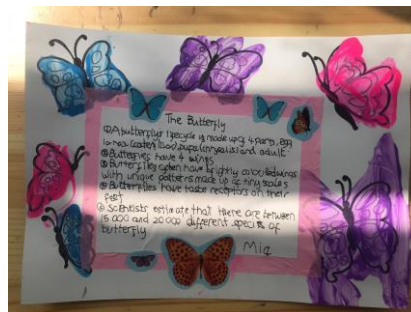 The Butterfly
① A butterflys lifecycle is made up of 4 parts, egg
larvae (caterpillar), pupa (chrysalis) and adult
② Butterflies have 4 wings
③ Butterflies often have brightly coloured wings
with unique patterns made up of tiny scales
④ Butterflies have taste receptors on their
feet
⑤ Scientists estimate that there are between
15 000 and 20 000 different species of
butterfly
Mia